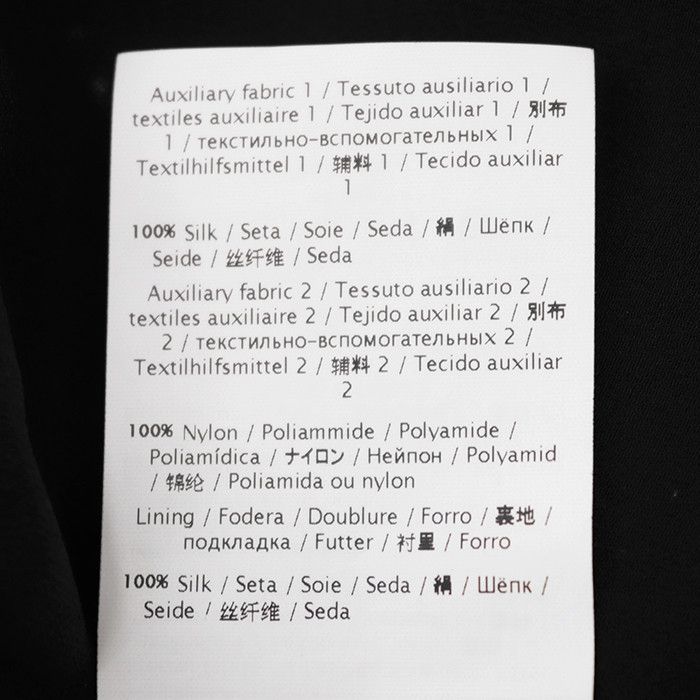 Auxiliary fabric 1 / Tessuto ausiliario 1 /
textiles auxiliaire 1 / Tejido auxiliar 1 / 別布
1 / текстильно-вспомогательных 1 /
Textilhilfsmittel 1 / 辅料 1 / Tecido auxiliar
1
100% Silk / Seta / Soie / Seda / 絹 / Шёпк /
Seide / 丝纤维 / Seda
Auxiliary fabric 2 / Tessuto ausiliario 2 /
textiles auxiliaire 2 / Tejido auxiliar 2 / 別布
2 / текстильно-вспомогательных 2 /
Textilhilfsmittel 2 / 辅料 2 / Tecido auxiliar
2
100% Nylon / Poliammide / Polyamide /
Poliamídica / ナイロン / Нейпон / Polyamid
/ 锦纶 / Poliamida ou nylon
Lining / Fodera / Doublure / Forro / 裏地 /
подкладка / Futter / 衬里 / Forro
100% Silk / Seta / Soie / Seda / 絹 / Шёпк /
Seide / 丝纤维 / Seda